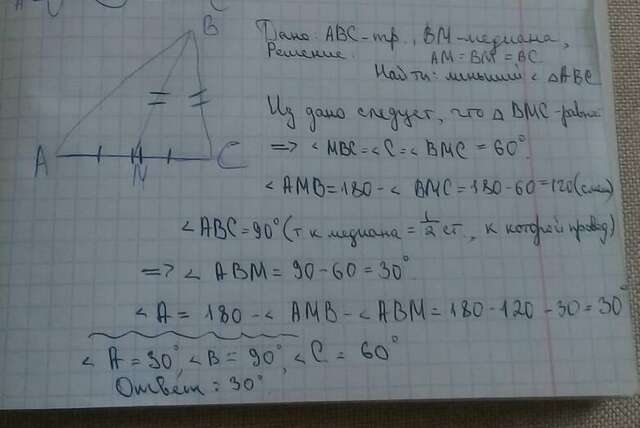 B
A
M
C
Дано: ABC-тр., BM-медиана,
AM=BM=BC
Решение.
Найти: меньший ∠ △ABC
Из дано следует, что △ BMC-равно
=> ∠MBC=∠C=∠BMC = 60°.
∠AMB=180-∠BMC=180-60=120(смеж)
∠ABC=90° (т к медиана = 1/2 ст., к которой провед)
=> ∠ABM= 90-60=30°
∠A= 180-∠AMB-∠ABM=180-120-30=30°
∠A=30°, ∠B=90°, ∠C= 60°
Ответ: 30°